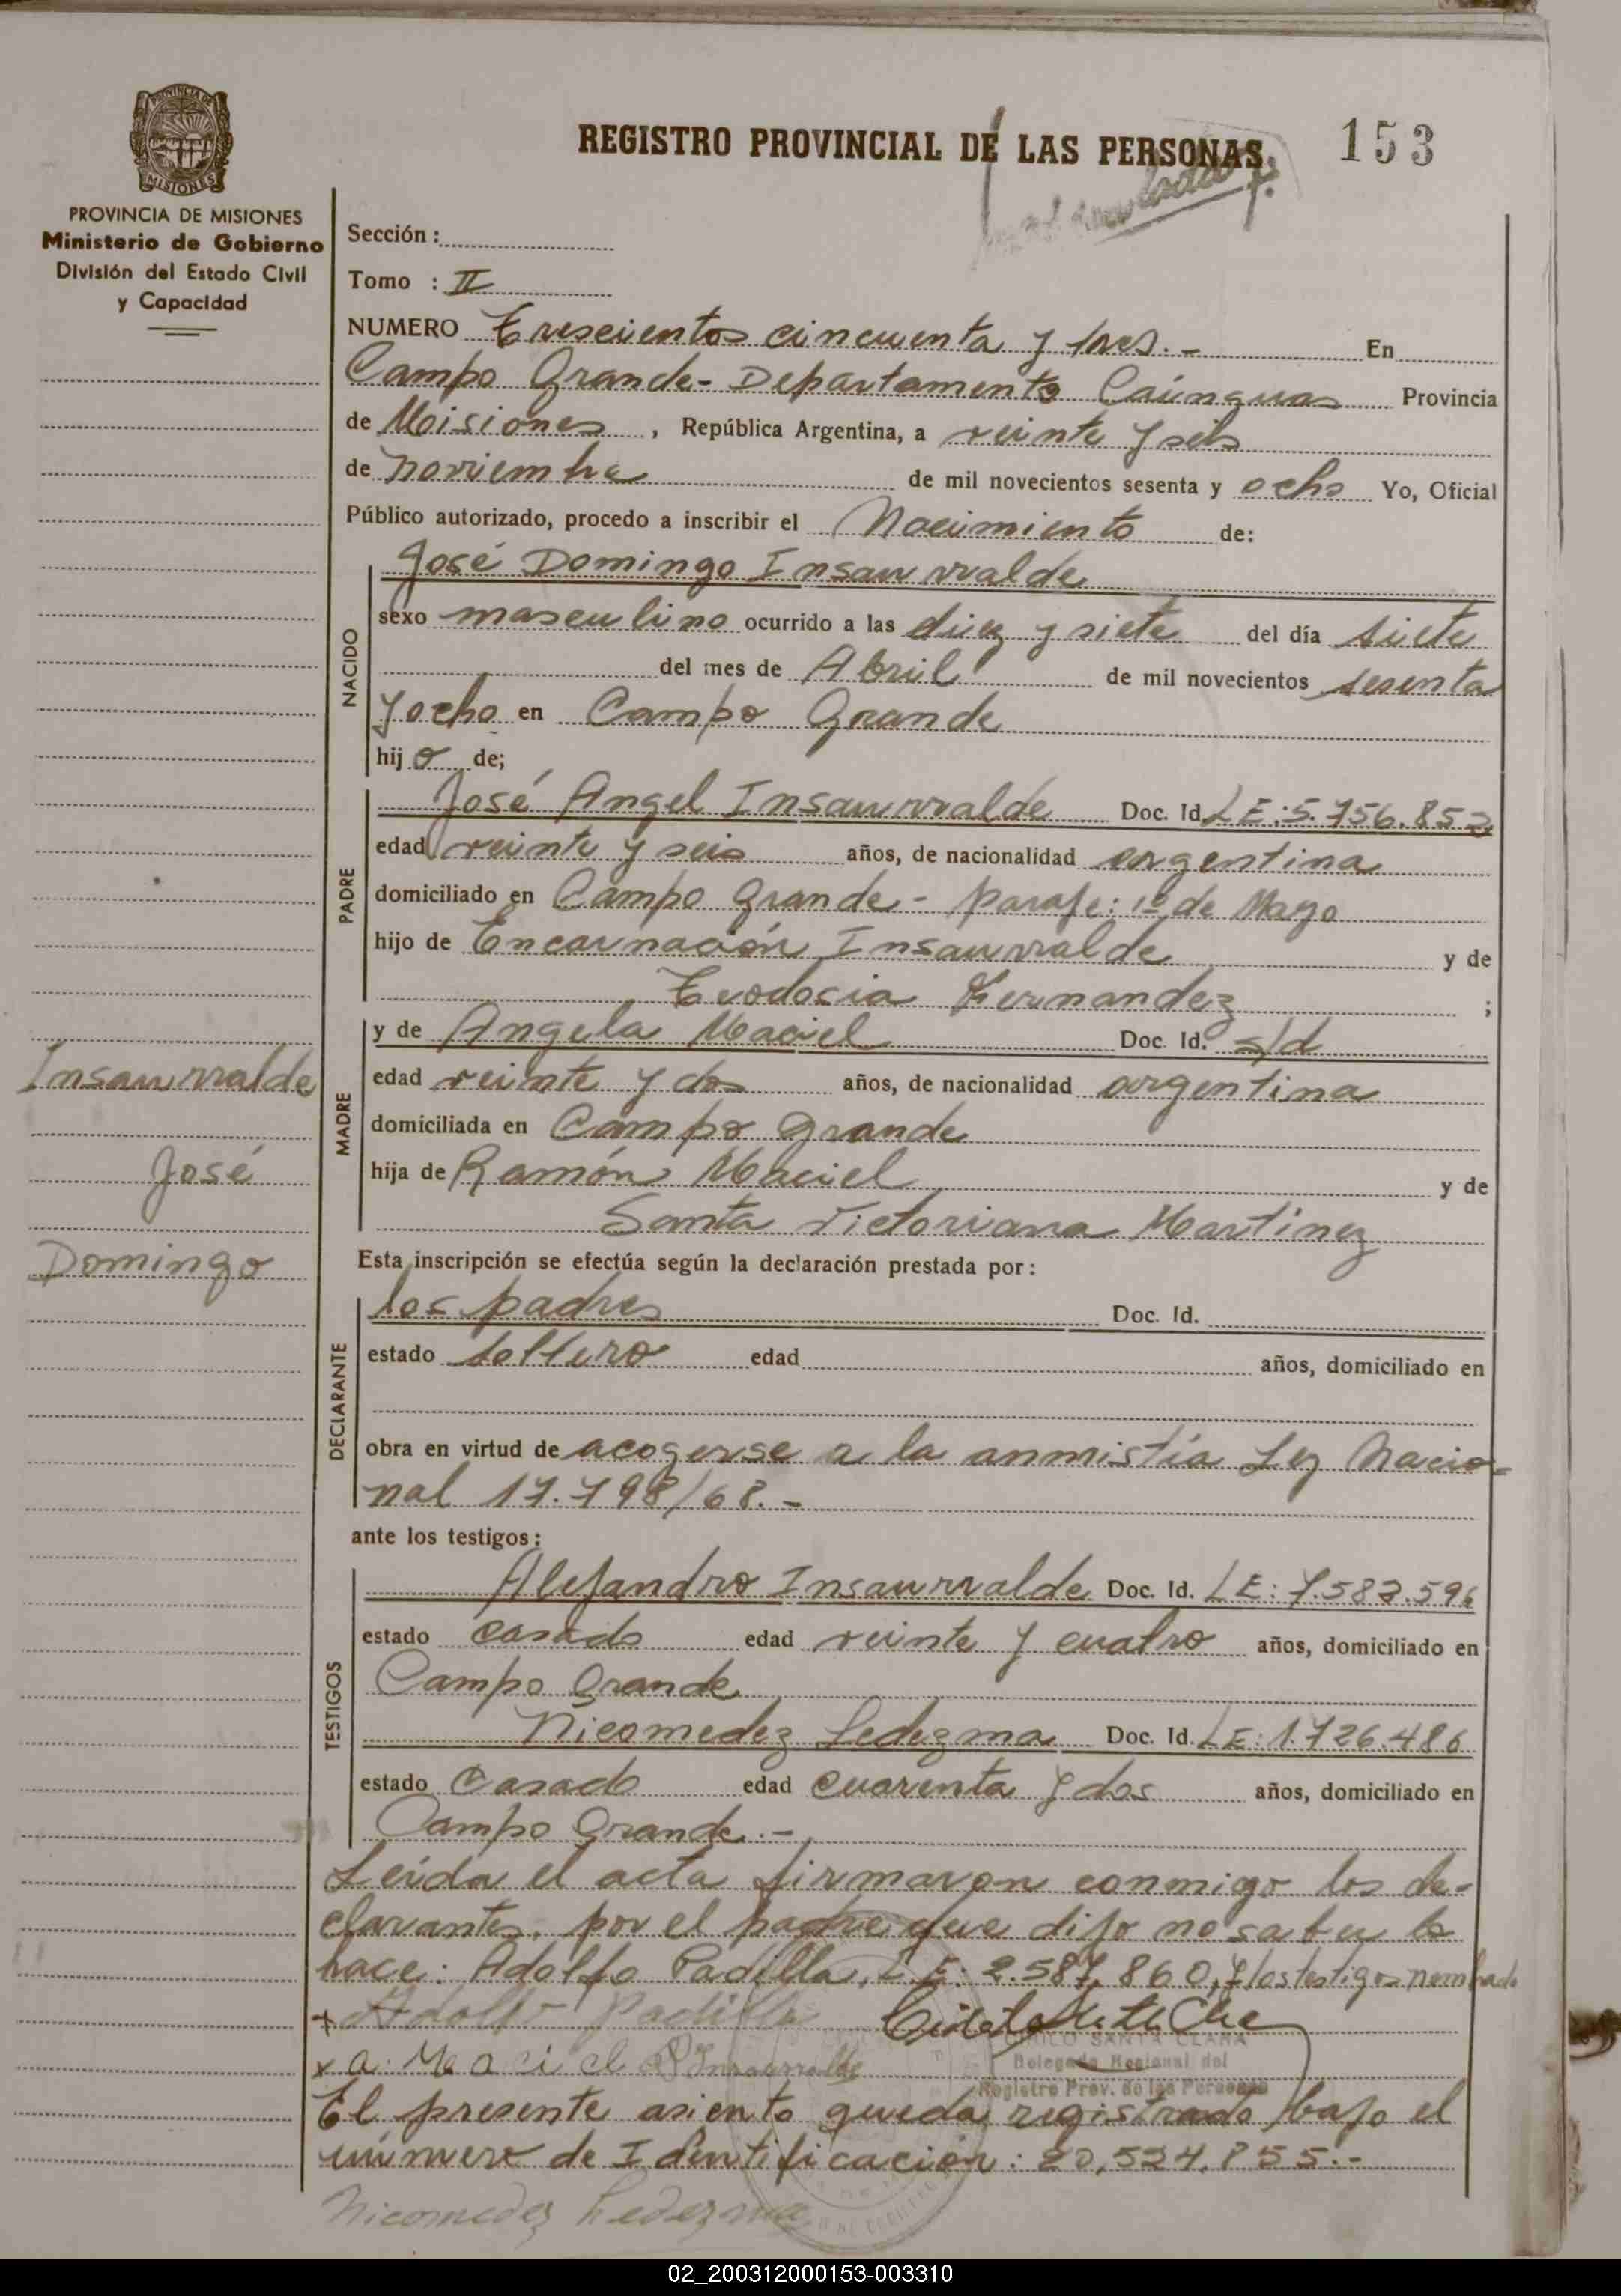 REGISTRO PROVINCIAL DE LAS PERSONAS.
153
PROVINCIA DE MISIONES
PROVINCIA DE MISIONES
Ministerio de Gobierno
División del Estado Civil
y Capacidad
Sección :
Tomo : II
NUMERO Trescientos cincuenta y tres.- En
Campo Grande - Departamento Caínguas Provincia
de Misiones, República Argentina, a veinte y seis
de noviembre de mil novecientos sesenta y ocho Yo, Oficial
Público autorizado, procedo a inscribir el Nacimiento de:
NACIDO
José Domingo Insaurralde
sexo masculino ocurrido a las diez y siete del día siete
del mes de Abril de mil novecientos sesenta
y ocho en Campo Grande
hij o de;
PADRE
José Angel Insaurralde Doc. Id. LE: 5.756.852
edad veinte y seis años, de nacionalidad argentina
domiciliado en Campo Grande - Paraje: 1º de Mayo
hijo de Encarnación Insaurralde y de
Teodosia Fernandez ;
MADRE
y de Angela Maciel Doc. Id. s/d
edad veinte y dos años, de nacionalidad argentina
domiciliada en Campo Grande
hija de Ramón Maciel y de
Santa Victoriana Martínez
Insaurralde
José
Domingo
Esta inscripción se efectúa según la declaración prestada por :
DECLARANTE
los padres Doc. Id.
estado soltero edad años, domiciliado en
obra en virtud de acogerse a la anmistía Ley Nacio-
nal 17.798/68.-
ante los testigos :
TESTIGOS
Alejandro Insaurralde Doc. Id. LE: 7.582.596
estado casado edad veinte y cuatro años, domiciliado en
Campo Grande
Nicomedez Ledezma Doc. Id. LE: 1.726.486
estado Casado edad cuarenta y dos años, domiciliado en
Campo Grande.-
Leída el acta firmaron conmigo los de-
clarantes, por el padre que dijo no saber lo
hace: Adolfo Padilla, L.E: 2.587.860, y los testigos nombrado
x Adolfo Padilla
CIRILO SANTA CLARA
Delegado Regional del
Registro Prov. de las Personas
x a. Maciel A Insaurralde
El presente asiento queda registrado bajo el
número de Identificación: 20,524,855.-
Nicomedez Ledezma
02_200312000153-003310